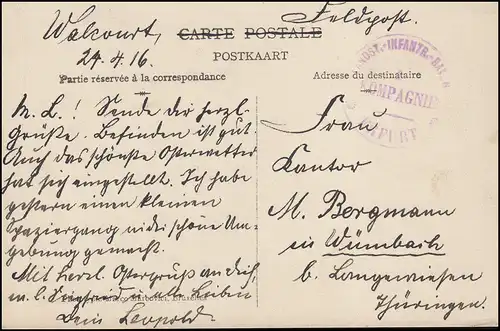 Walcourt,
24.4.16.
CARTE POSTALE
POSTKAART
Feldpost.
Partie réservée à la correspondance
Adresse du destinataire
INFANTR.-BAT.
KOMPAGNIE
ERFURT
M. L.! Sende dir herzl.
Grüße. Befinden ist gut.
Auch das schönste Osterwetter
hat sich eingestellt. Ich habe
gestern einen kleinen
Spaziergang in die schöne Um-
gebung gemacht.
Mit herzl. Ostergruss an dich,
m. l. Siegfried u. alle Lieben
Dein Leopold.
Frau
Kantor
M. Bergmann
in Wümbach
b. Langewiesen
Thüringen.